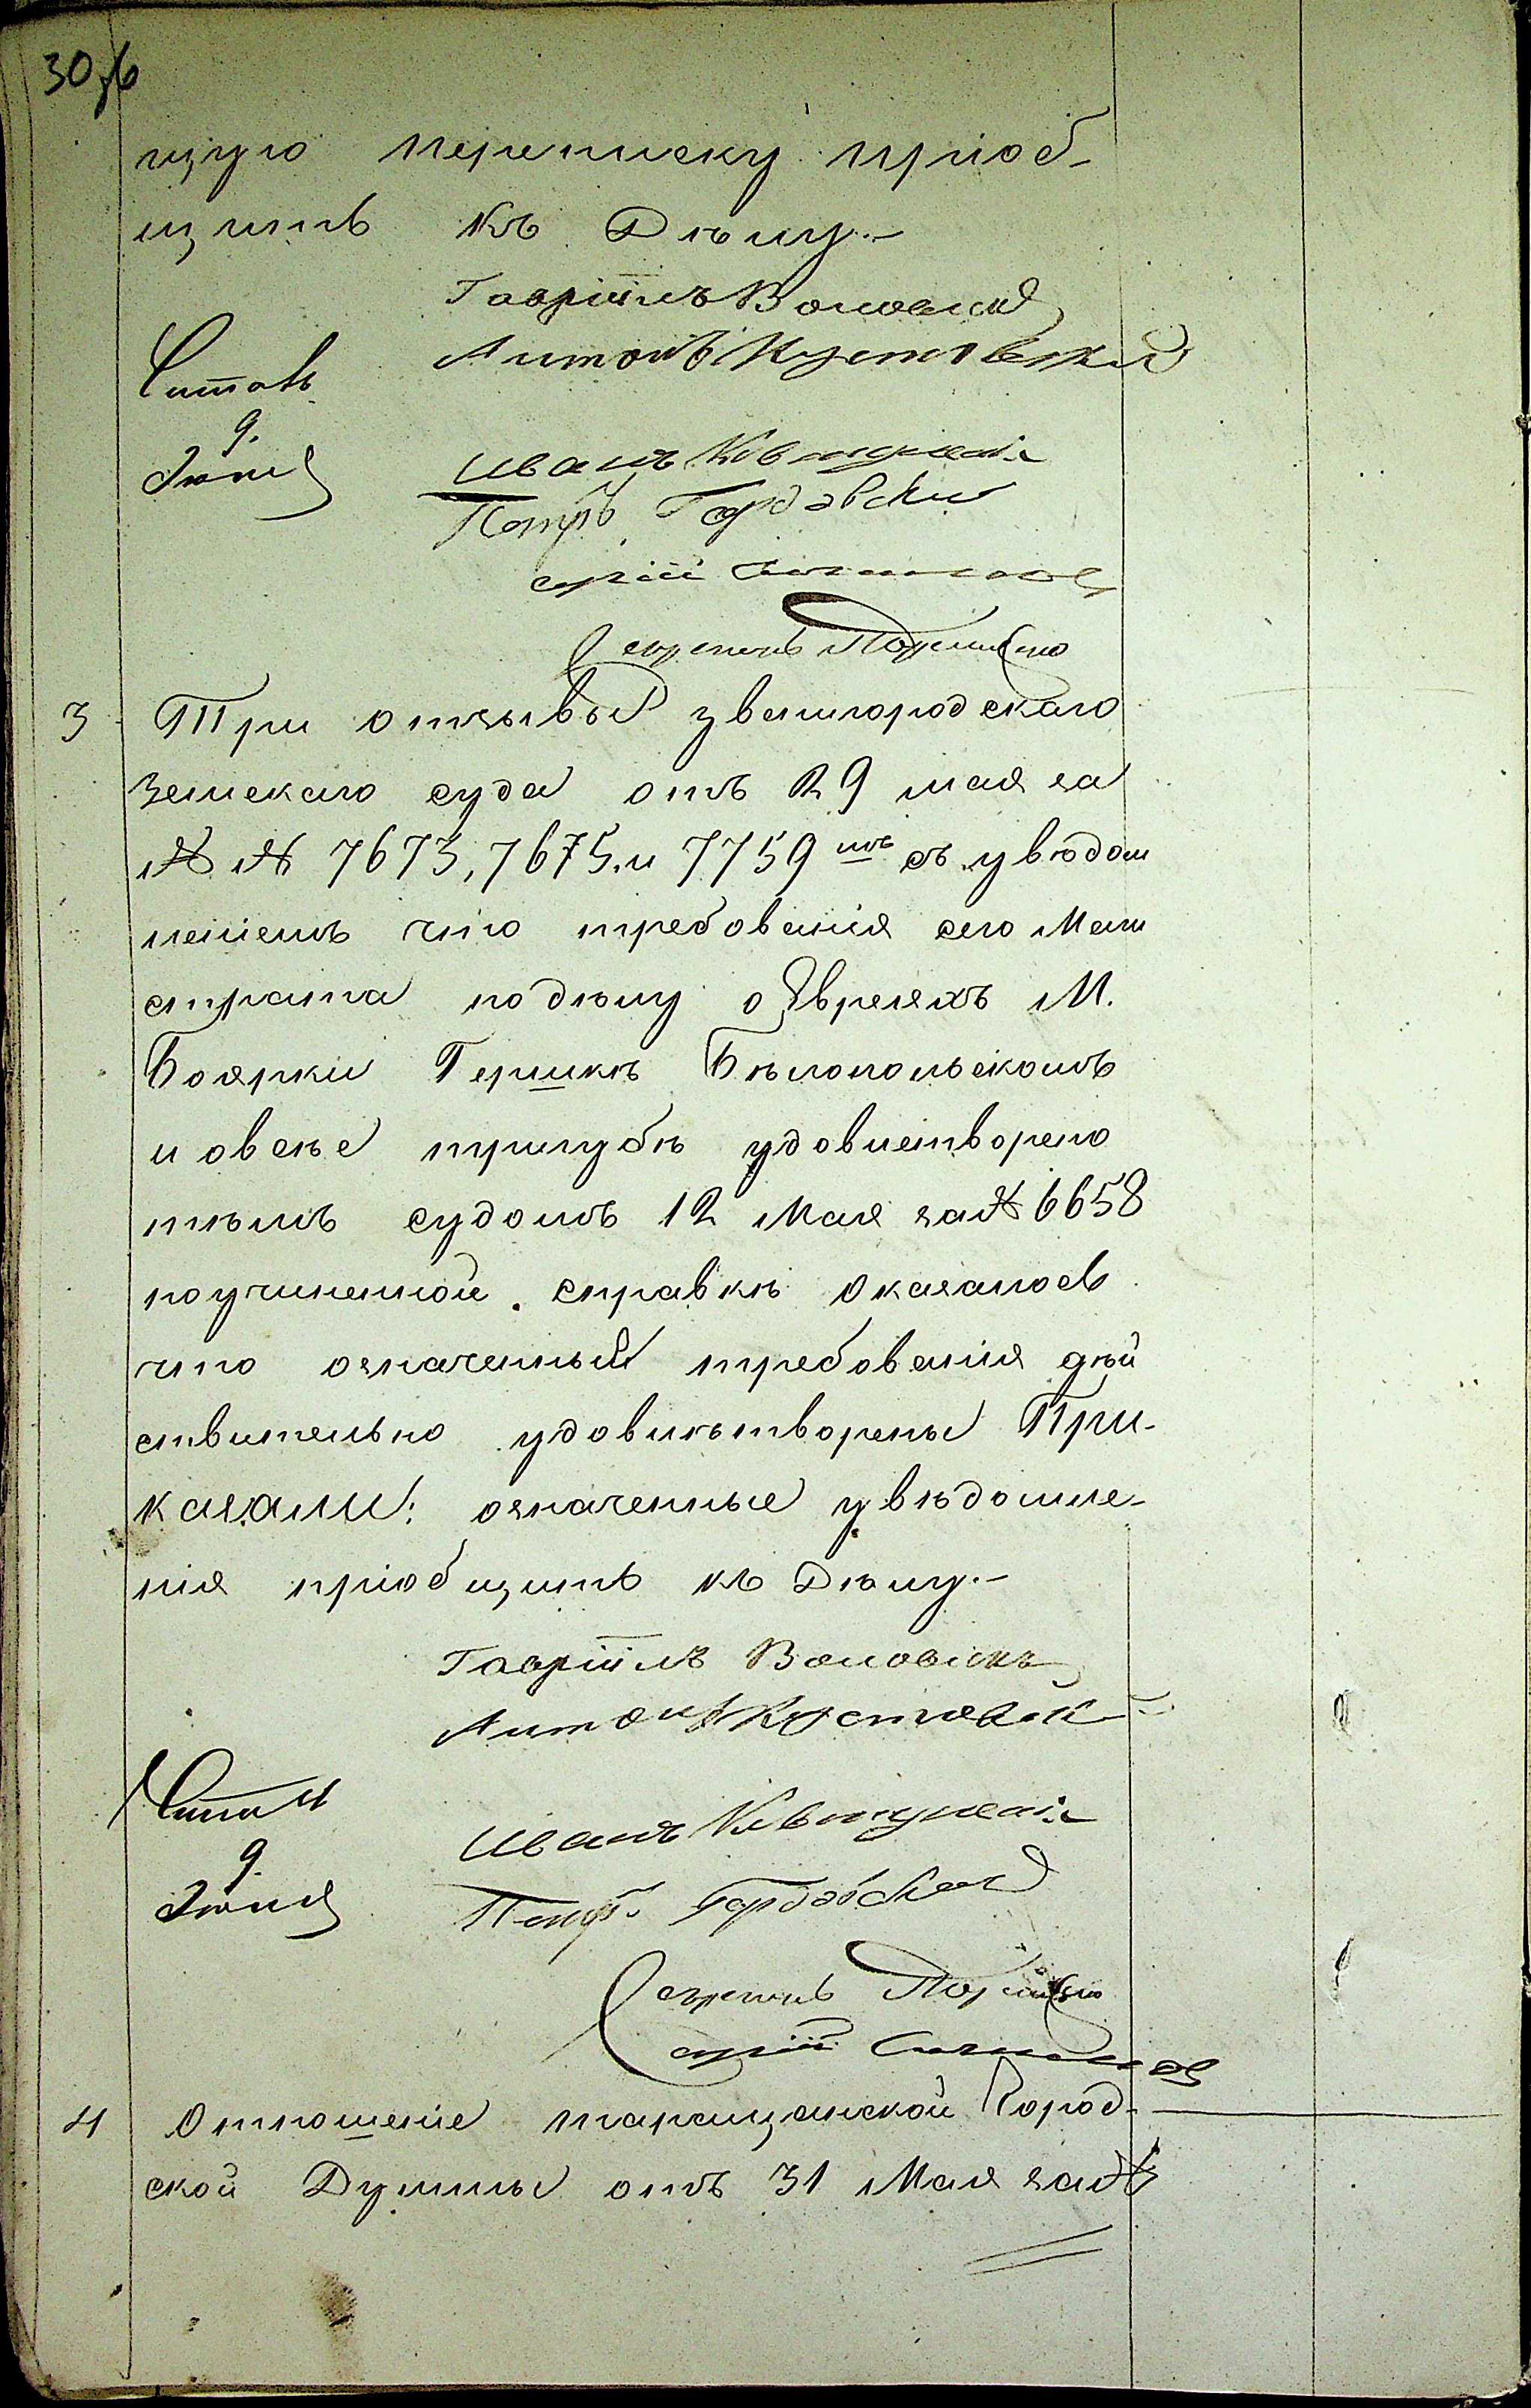 30 об
щую переписку приоб-
щить къ Дѣлу.-
Гавріилъ
Антонъ Кустовскій
Читалъ
9.
Іюня
Иванъ
Петръ Гордовскій
Сергій
Секретарь
3 Три отзывы звенигородскаго
земскаго суда отъ 29 мая за
№ № 7673, 7675. и 7759 мъ съ увѣдом
леніемъ что требованія сего Маги
страта по дѣлу о Евреяхъ М.
Боярки Гершкѣ Бѣлопольскомъ
и овсѣе трилубѣ удовлетворено
тѣмъ судомъ 12 Мая за № 6658
по учиненной справкѣ оказалось
что означенныи требованія дѣй
ствительно удовлѣтворены При-
казали: означенные увѣдомле-
нія пріобщить къ Дѣлу.-
Гавріилъ
Антонъ Кустовскій
Читалъ
9.
Іюня
Иванъ
Петръ Гордовскій
Секретарь
Сергій
4 Отношеніе таращанской Город-
ской Думмы отъ 31 Мая за №